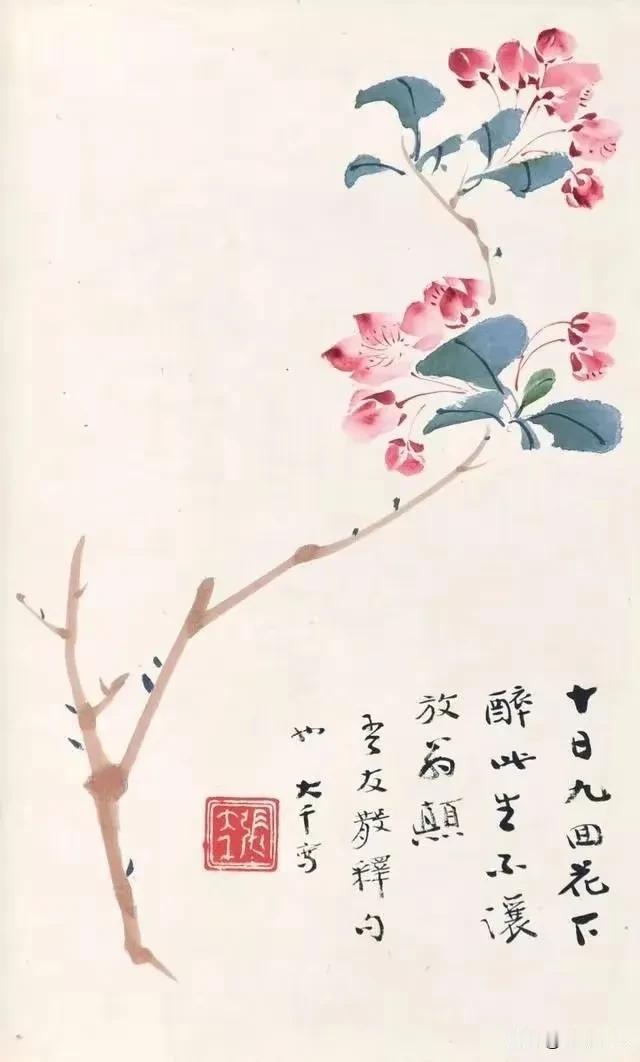 十日九回花下
醉此生不讓
放翁顛
吾友散釋句
也 大千寫
張大千